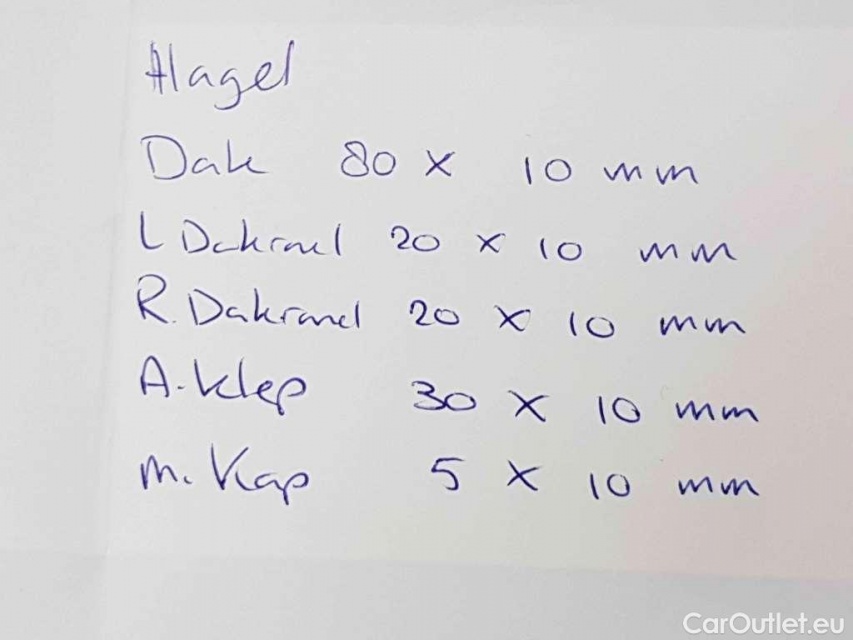 Hagel
Dak 80 x 10 mm
L Dakrand 20 x 10 mm
R. Dakrand 20 x 10 mm
A. klep 30 x 10 mm
m. Kap 5 x 10 mm
CarOutlet.eu